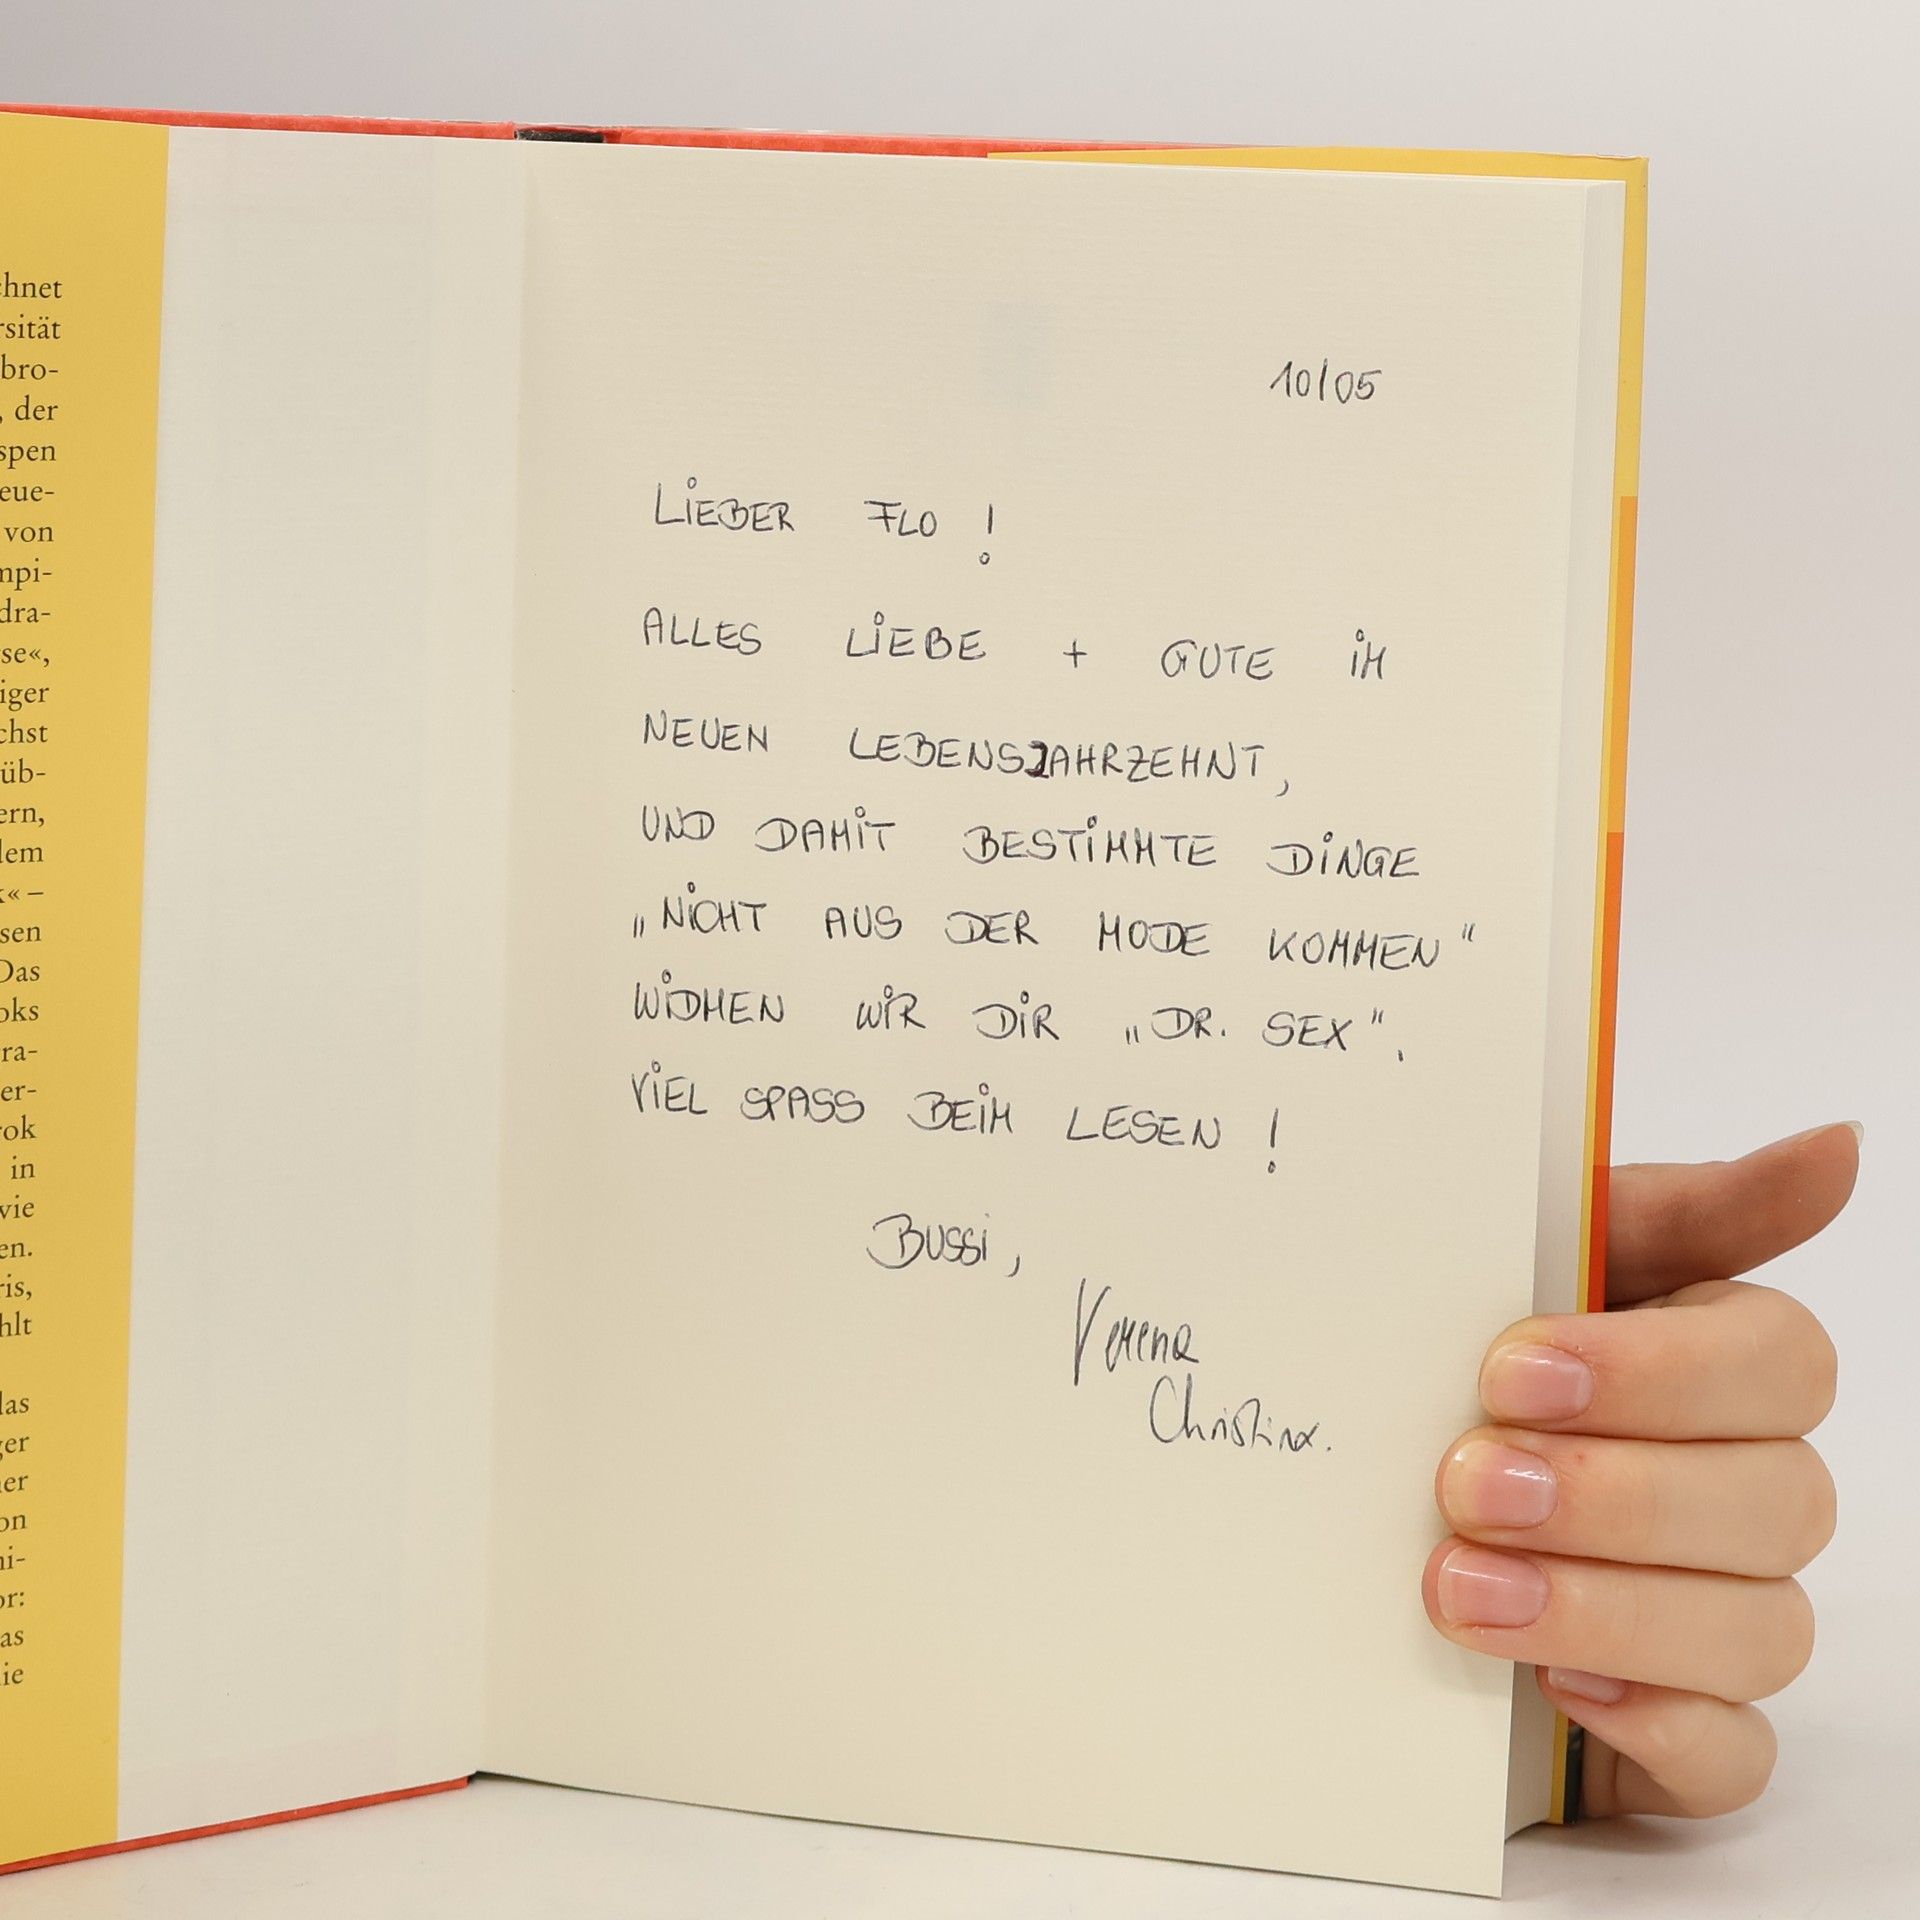 chnet
rsität
bro-
, der
spen
eue-
von
mpi-
dra-
se«,
iger
chst
üb-
ern,
dem
k« –
sen
Das
oks
ra-
er-
rok
in
wie
en.
ris,
hlt
das
ger
ner
on
ni-
or:
as
ie
10/05
LIEBER FLO !
ALLES LIEBE + GUTE IM
NEUEN LEBENSJAHRZEHNT,
UND DAMIT BESTIMMTE DINGE
„NICHT AUS DER MODE KOMMEN“
WIDMEN WIR DIR „DR. SEX“.
VIEL SPASS BEIM LESEN !
BUSSI,
Verena
Christina.